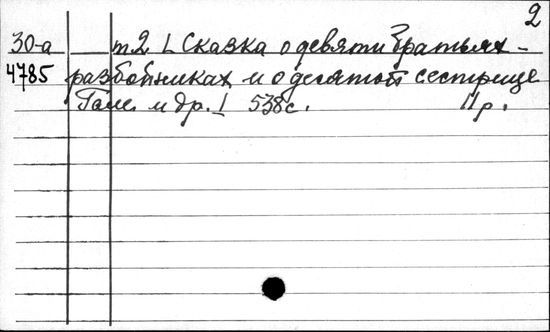 2
30-а т.2 [Сказка о девяти братьях -
4785 разбойниках и о десятой сестрице
Гале и др.] 538с. 11р.